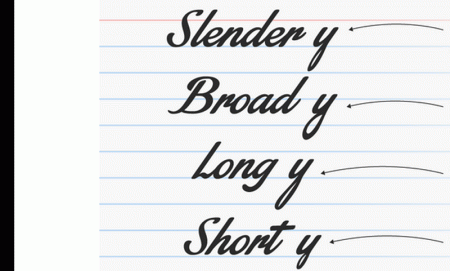 Slender y
Broad y
Long y
Short y